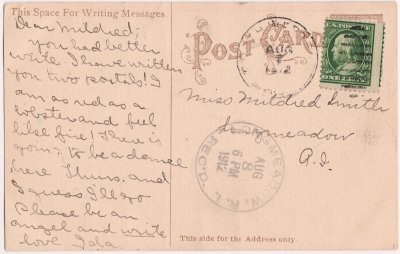 This Space For Writing Messages
Dear Mildred;
you had better
write I have written
you two postals! I
am as red as a
lobster and feel
like fire! There is
going to be a dance
here Thurs. and
I guess I'll go
Please be an
angel and write
love Ida.
POST CARD
AUG
1912
U.S. POSTAGE
ONE CENT
Miss Mildred Smith
Longmeadow
R.I.
LONGMEADOW, R.I.
AUG
8
6 PM
1912
REC'D.
This side for the Address only.